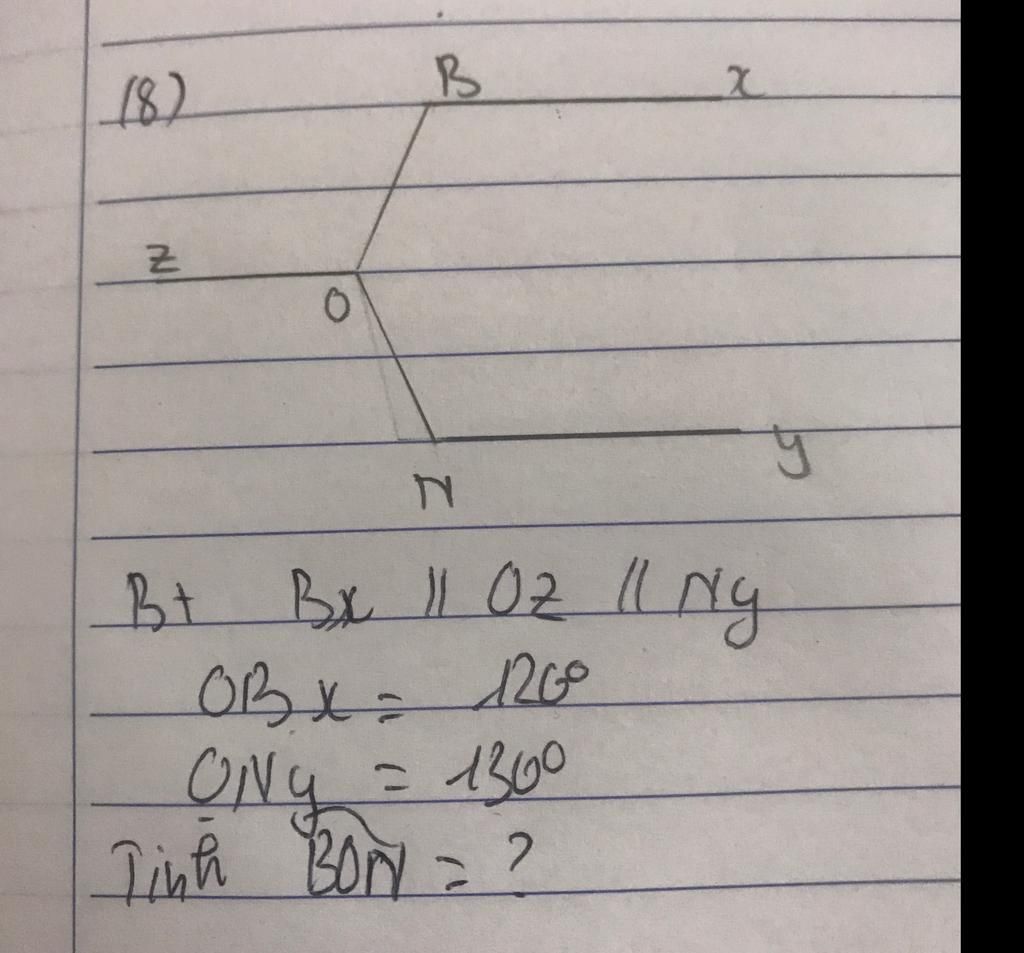 (8)
B x
z
O
N y
Bt Bx // Oz // Ny
OBx = 120°
ONy = 130°
Tính BON = ?